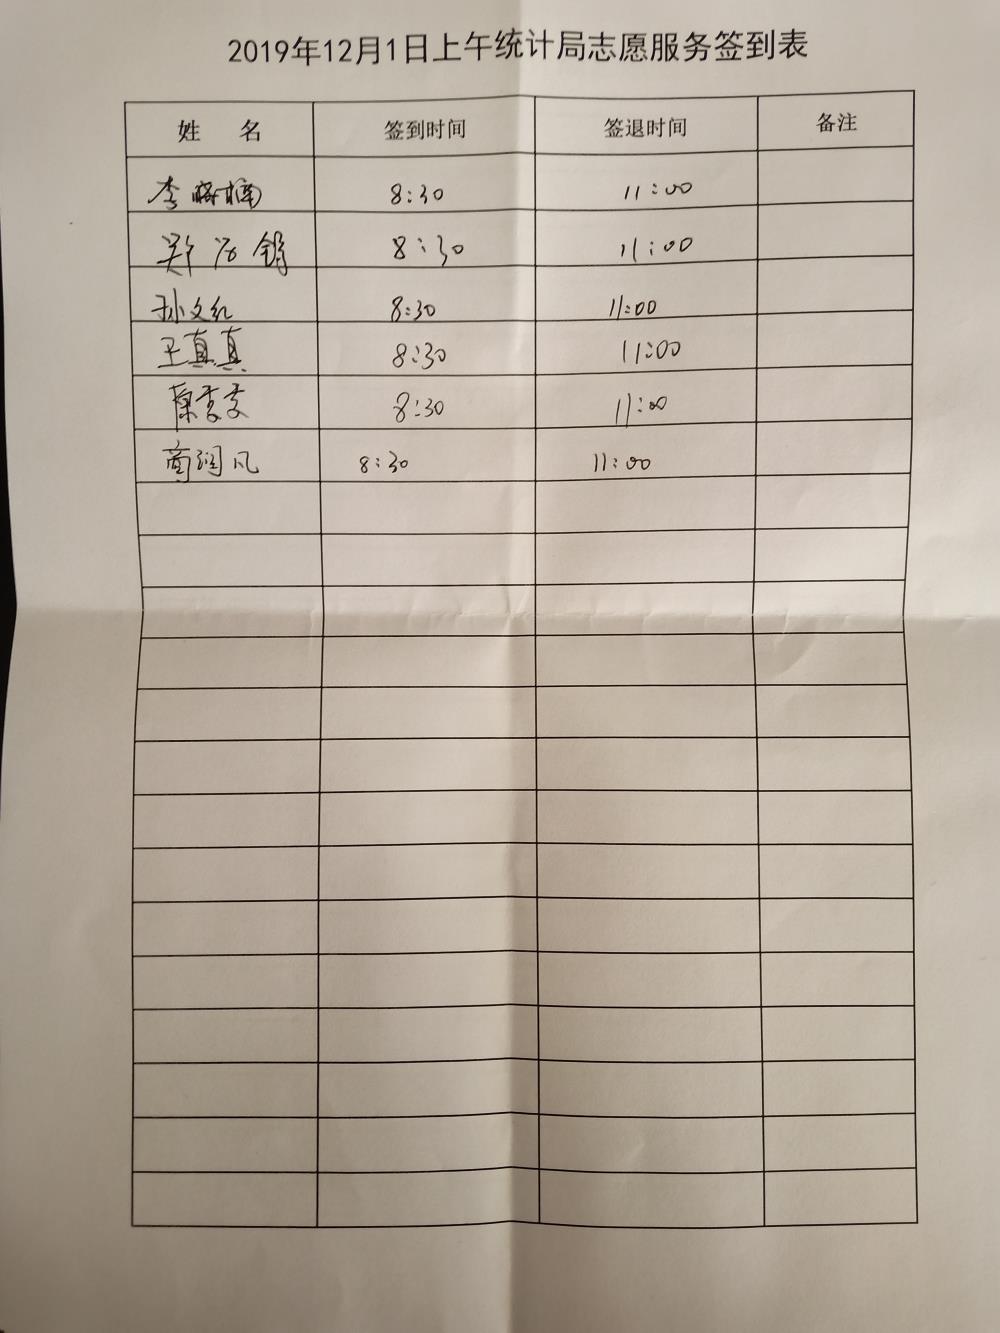 2019年12月1日上午统计局志愿服务签到表
姓 名 签到时间 签退时间 备注
李 8:30 11:00
郑 8:30 11:00
孙文红 8:30 11:00
王真真 8:30 11:00
8:30 11:00
商润凡 8:30 11:00